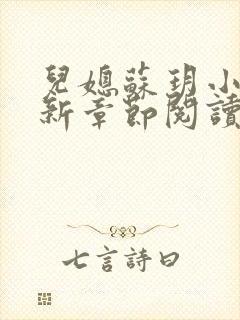 兒媳蘇玥小
新章節閱讀
七言詩曰